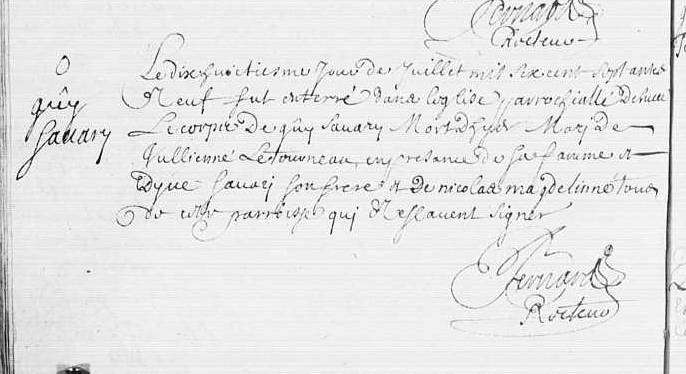 Fernard
Recteur
O
guy
Savary
Le dix huictiesme Jour de Juillet mil six cent septante
Neuf fut enterré dans leglise parrochialle
Le corps De guy Savary Mort d'hyer Mary de
Jullienne Letourneau, en presance de sa famme et
Savari son frere et De nicolas magdelinne tous
de cette parroisse qui Ne scavent signer
Fernard
Recteur